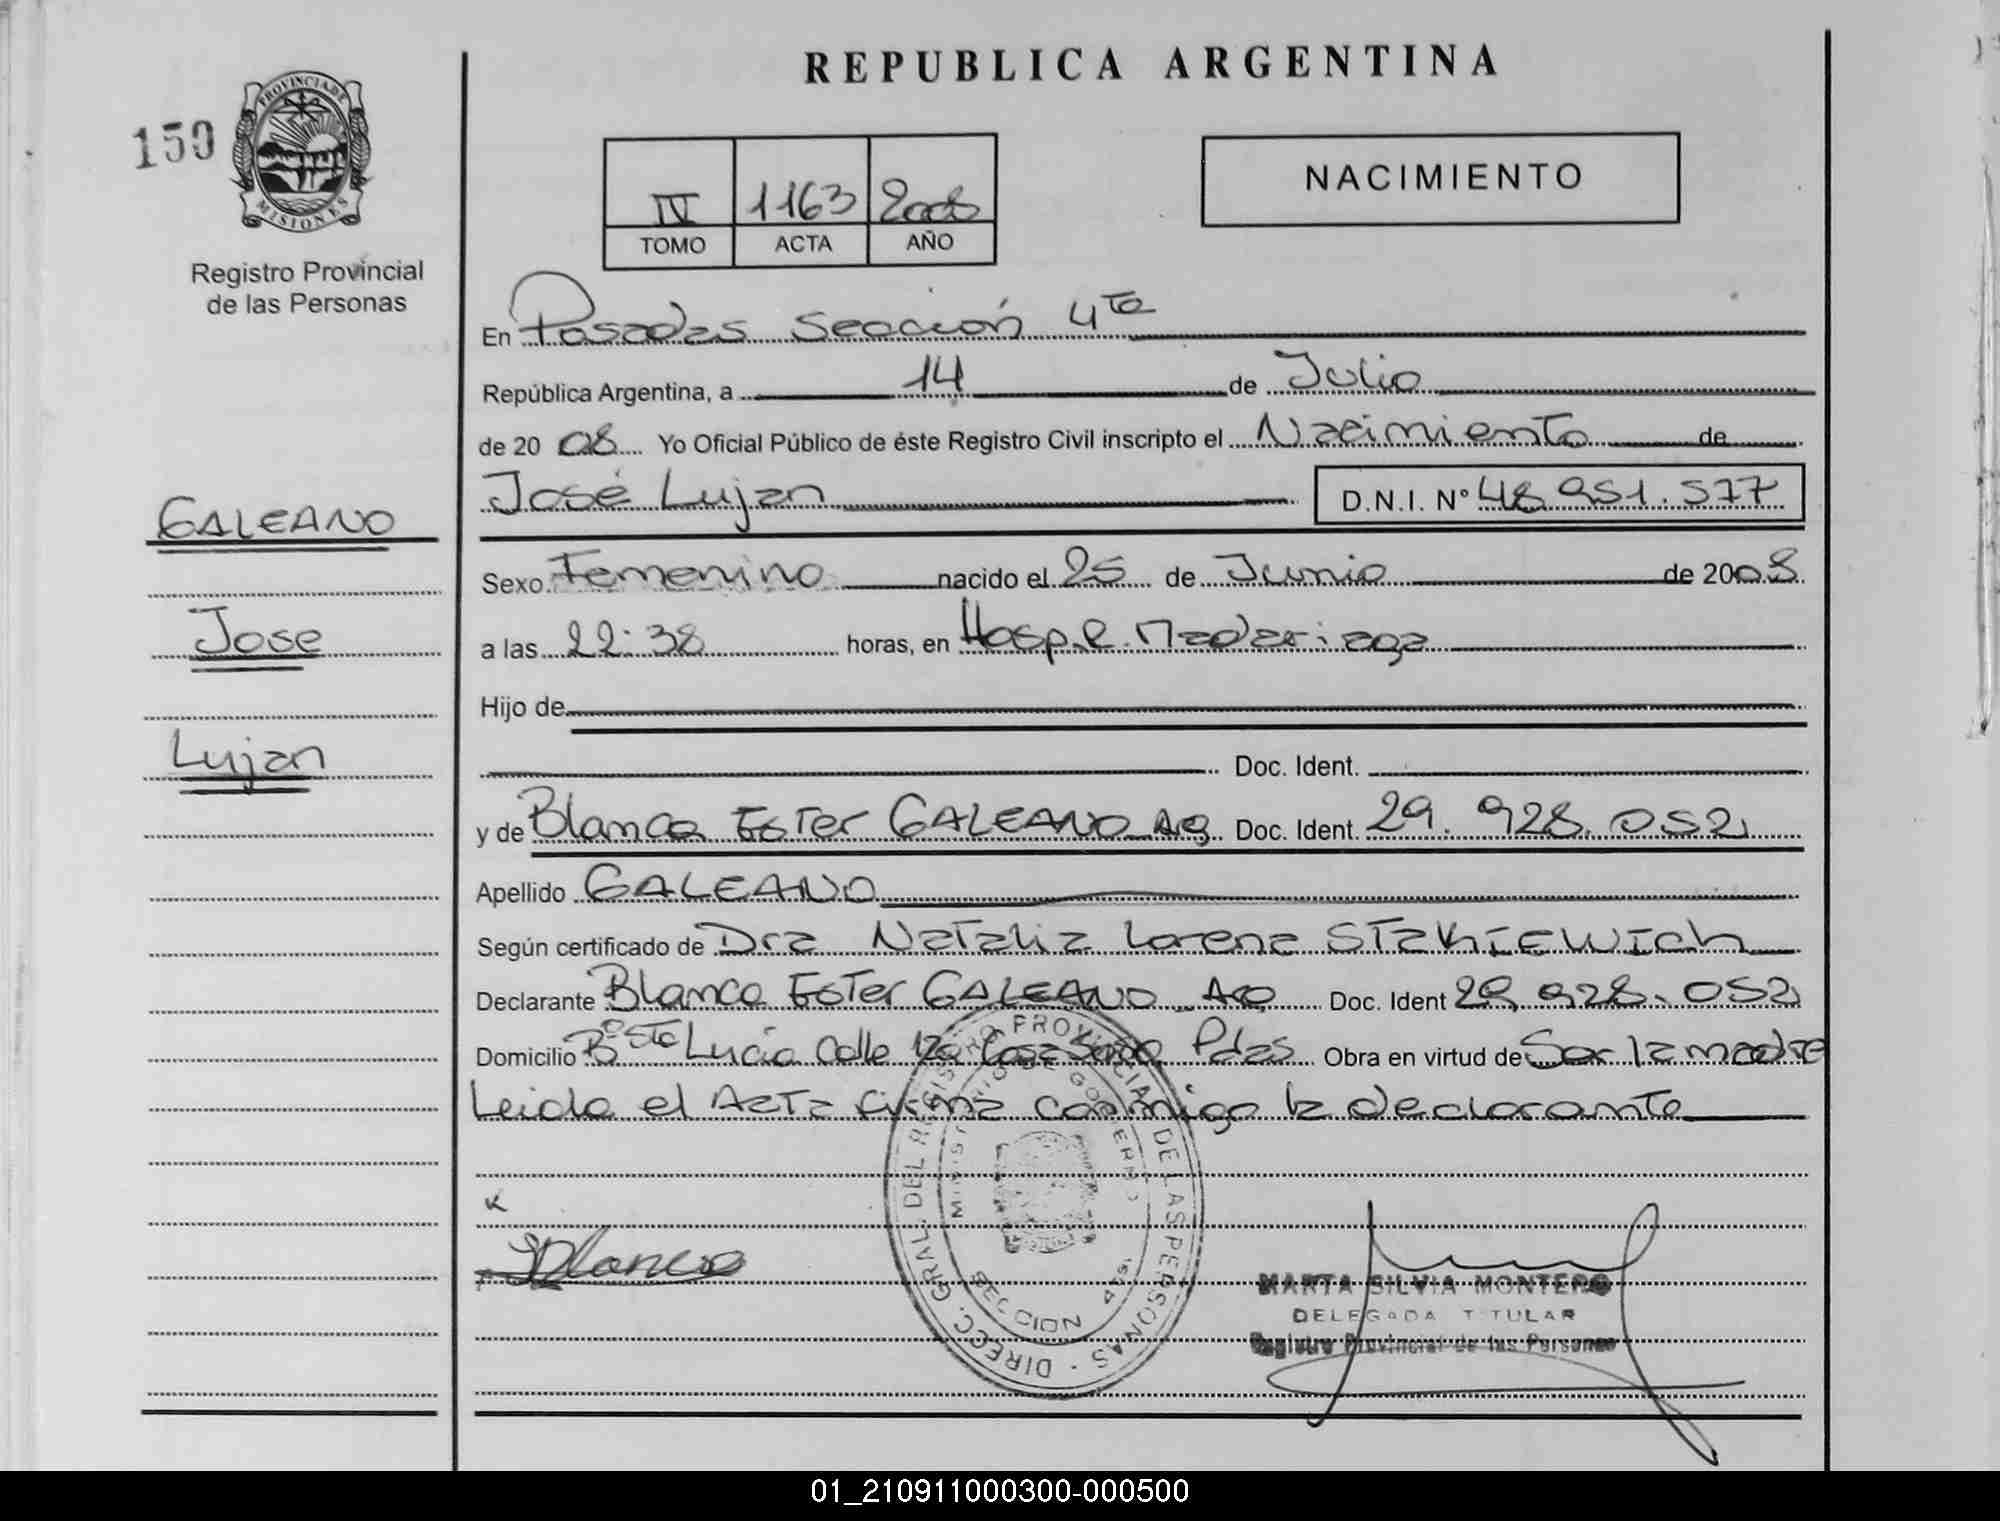 REPUBLICA ARGENTINA
150
PROVINCIA DE
MISIONES
Registro Provincial
de las Personas
NACIMIENTO
IV 1163 2008
TOMO ACTA AÑO
En Posadas Sección 4ta
República Argentina, a 14 de Julio
de 20 08 Yo Oficial Público de éste Registro Civil inscripto el Nacimiento de
José Lujan D.N.I. Nº 48.951.577
GALEANO
Sexo Femenino nacido el 25 de Junio de 2008
Jose
a las 22:38 horas, en Hosp. R. Madariaga
Hijo de
Lujan
Doc. Ident.
y de Blanca Ester GALEANO Arg Doc. Ident. 29.928.052
Apellido GALEANO
Según certificado de Dra Natalia Lorena Stakiewich
Declarante Blanca Ester GALEANO Arg Doc. Ident 29.928.052
Domicilio Bº Sta Lucia Calle 120 Casa Pdas Obra en virtud de Ser la madre
Leida el Acta firma conmigo la declarante
DIRECC. GRAL. DEL REGISTRO PROVINCIAL DE LAS PERSONAS
MINISTERIO DE GOBIERNO
Blanca
MARTA SILVIA MONTERO
DELEGADA TITULAR
Registro Provincial de las Personas
01_210911000300-000500